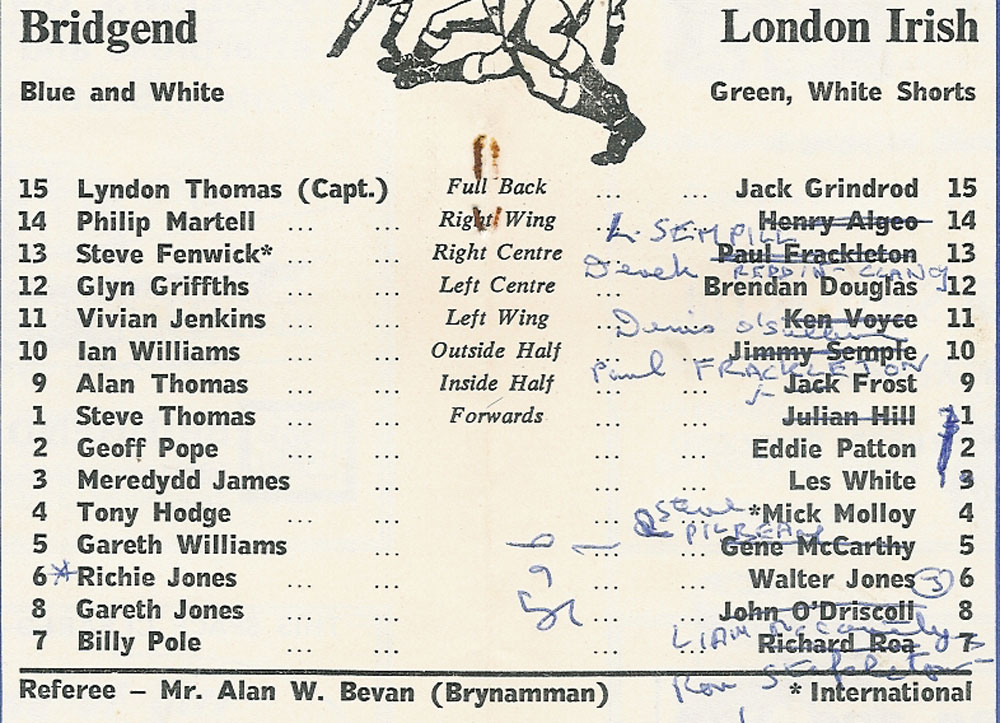 Bridgend London Irish
Blue and White Green, White Shorts
15 Lyndon Thomas (Capt.) Full Back ... ... Jack Grindrod 15
14 Philip Martell ... ... Right Wing ... Henry Algeo 14
L. SEMPILL
13 Steve Fenwick* ... Right Centre ... ... Paul Frackleton 13
Derek REDDIN-CLANCY
12 Glyn Griffths ... ... Left Centre ... Brendan Douglas 12
11 Vivian Jenkins ... ... Left Wing ... Ken Voyce 11
Denis O'Sullivan
10 Ian Williams ... ... Outside Half ... ... Jimmy Semple 10
Paul FRACKLETON
9 Alan Thomas ... ... Inside Half ... ... Jack Frost 9
1 Steve Thomas ... ... Forwards ... ... Julian Hill 1
2 Geoff Pope ... ... ... ... Eddie Patton 2
3 Meredydd James ... ... ... Les White 3
4 Tony Hodge ... ... ... ... *Mick Molloy 4
Steve PILBEAM
5 Gareth Williams ... ... Gene McCarthy 5
6 Richie Jones ... ... ... ... Walter Jones 3 6
9
8 Gareth Jones ... ... ... ... John O'Driscoll 8
LIAM
7 Billy Pole ... ... ... ... Richard Rea 7
Ron Stapleton
Referee – Mr. Alan W. Bevan (Brynamman) * International